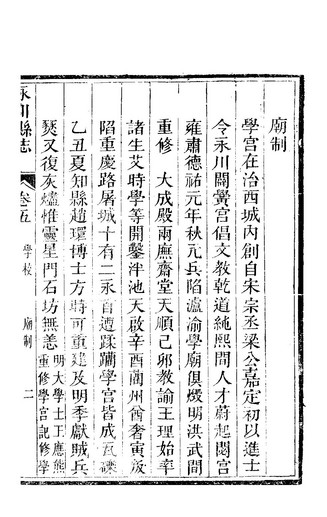 廟制
學宮在治西城內創自宋宗丞梁公嘉定初以進士
令永川闢黌宮倡文教乾道純熙間人才蔚起閟宮
雍肅德祐元年秋元兵陷瀘渝學廟俱燬明洪武間
重修　大成殿兩廡齋堂天順己卯教諭王理始率
諸生艾時學等開鑿泮池天啟辛酉藺州酋奢寅叛
陷重慶路屠城十有二永自遭蹂躪學宮皆成瓦礫
乙丑夏知縣趙環博士方時可重建及明季獻賊兵
燹又復灰燼惟靈星門石坊無恙
明大學士王應熊
重修學宮記修學
永川縣志
卷五
學校
廟制
二